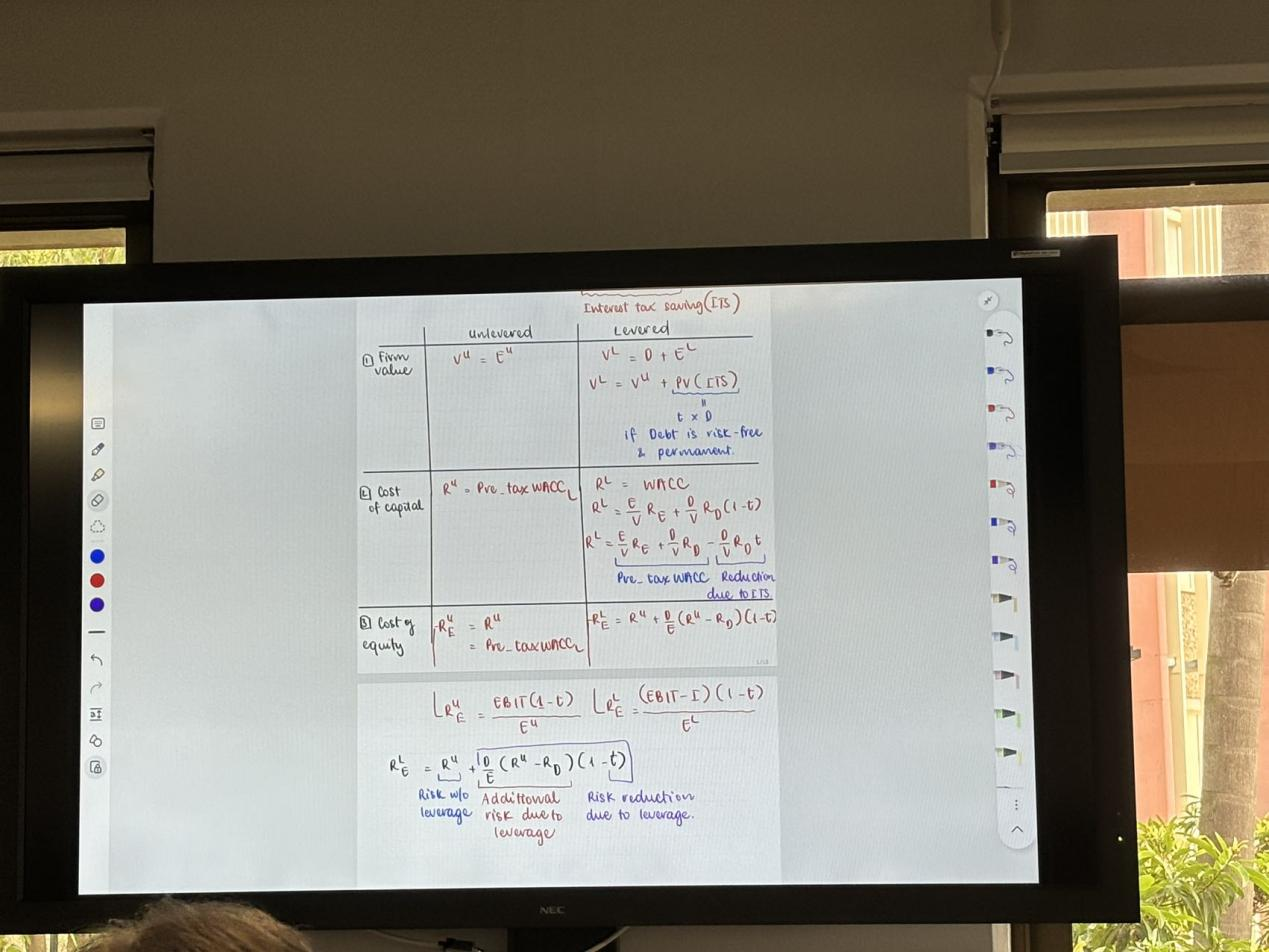 Interest tax saving (ITS)
Unlevered Levered
① Firm value
Vᵁ = Eᵁ
Vᴸ = D + Eᴸ
Vᴸ = Vᵁ + PV(ITS)
"
t x D
if Debt is risk-free
& permanent.
② Cost of capital
Rᵁ = Pre_tax WACC
Rᴸ = WACC
Rᴸ = E/V R_E + D/V R_D (1-t)
Rᴸ = E/V R_E + D/V R_D - D/V R_D t
Pre_tax WACC Reduction
due to ITS
③ Cost of equity
R_Eᵁ = Rᵁ
= Pre_tax WACC
R_Eᴸ = Rᵁ + D/E (Rᵁ - R_D)(1-t)
R_Eᵁ = EBIT(1-t)/Eᵁ R_Eᴸ = (EBIT-I)(1-t)/Eᴸ
R_Eᴸ = Rᵁ + D/E (Rᵁ - R_D)(1-t)
Risk w/o
leverage
Additional
risk due to
leverage
Risk reduction
due to leverage.
NEC